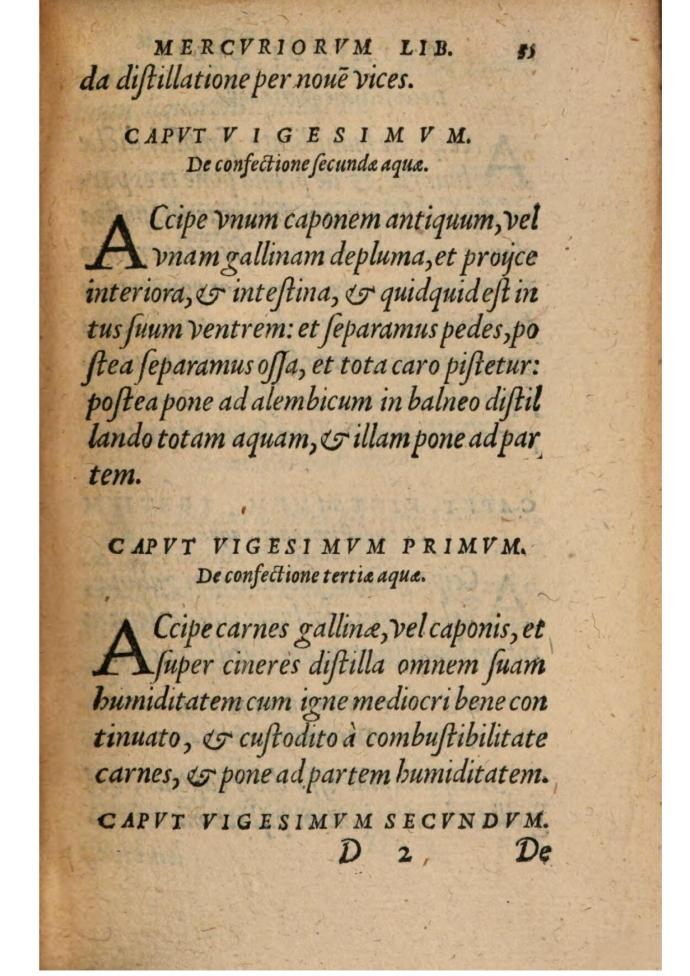 MERCVRIORVM LIB. 55
da distillatione per nouē vices.
CAPVT VIGESIMVM.
De confectione secundæ aquæ.
ACcipe vnum caponem antiquum, vel
vnam gallinam depluma, et proijce
interiora, & intestina, & quidquid est in
tus suum ventrem: et separamus pedes, po
stea separamus ossa, et tota caro pistetur:
postea pone ad alembicum in balneo distil
lando totam aquam, & illam pone ad par
tem.
CAPVT VIGESIMVM PRIMVM.
De confectione tertiæ aquæ.
ACcipe carnes gallinæ, vel caponis, et
super cineres distilla omnem suam
humiditatem cum igne mediocri bene con
tinuato, & custodito à combustibilitate
carnes, & pone ad partem humiditatem.
CAPVT VIGESIMVM SECVNDVM.
D 2 De